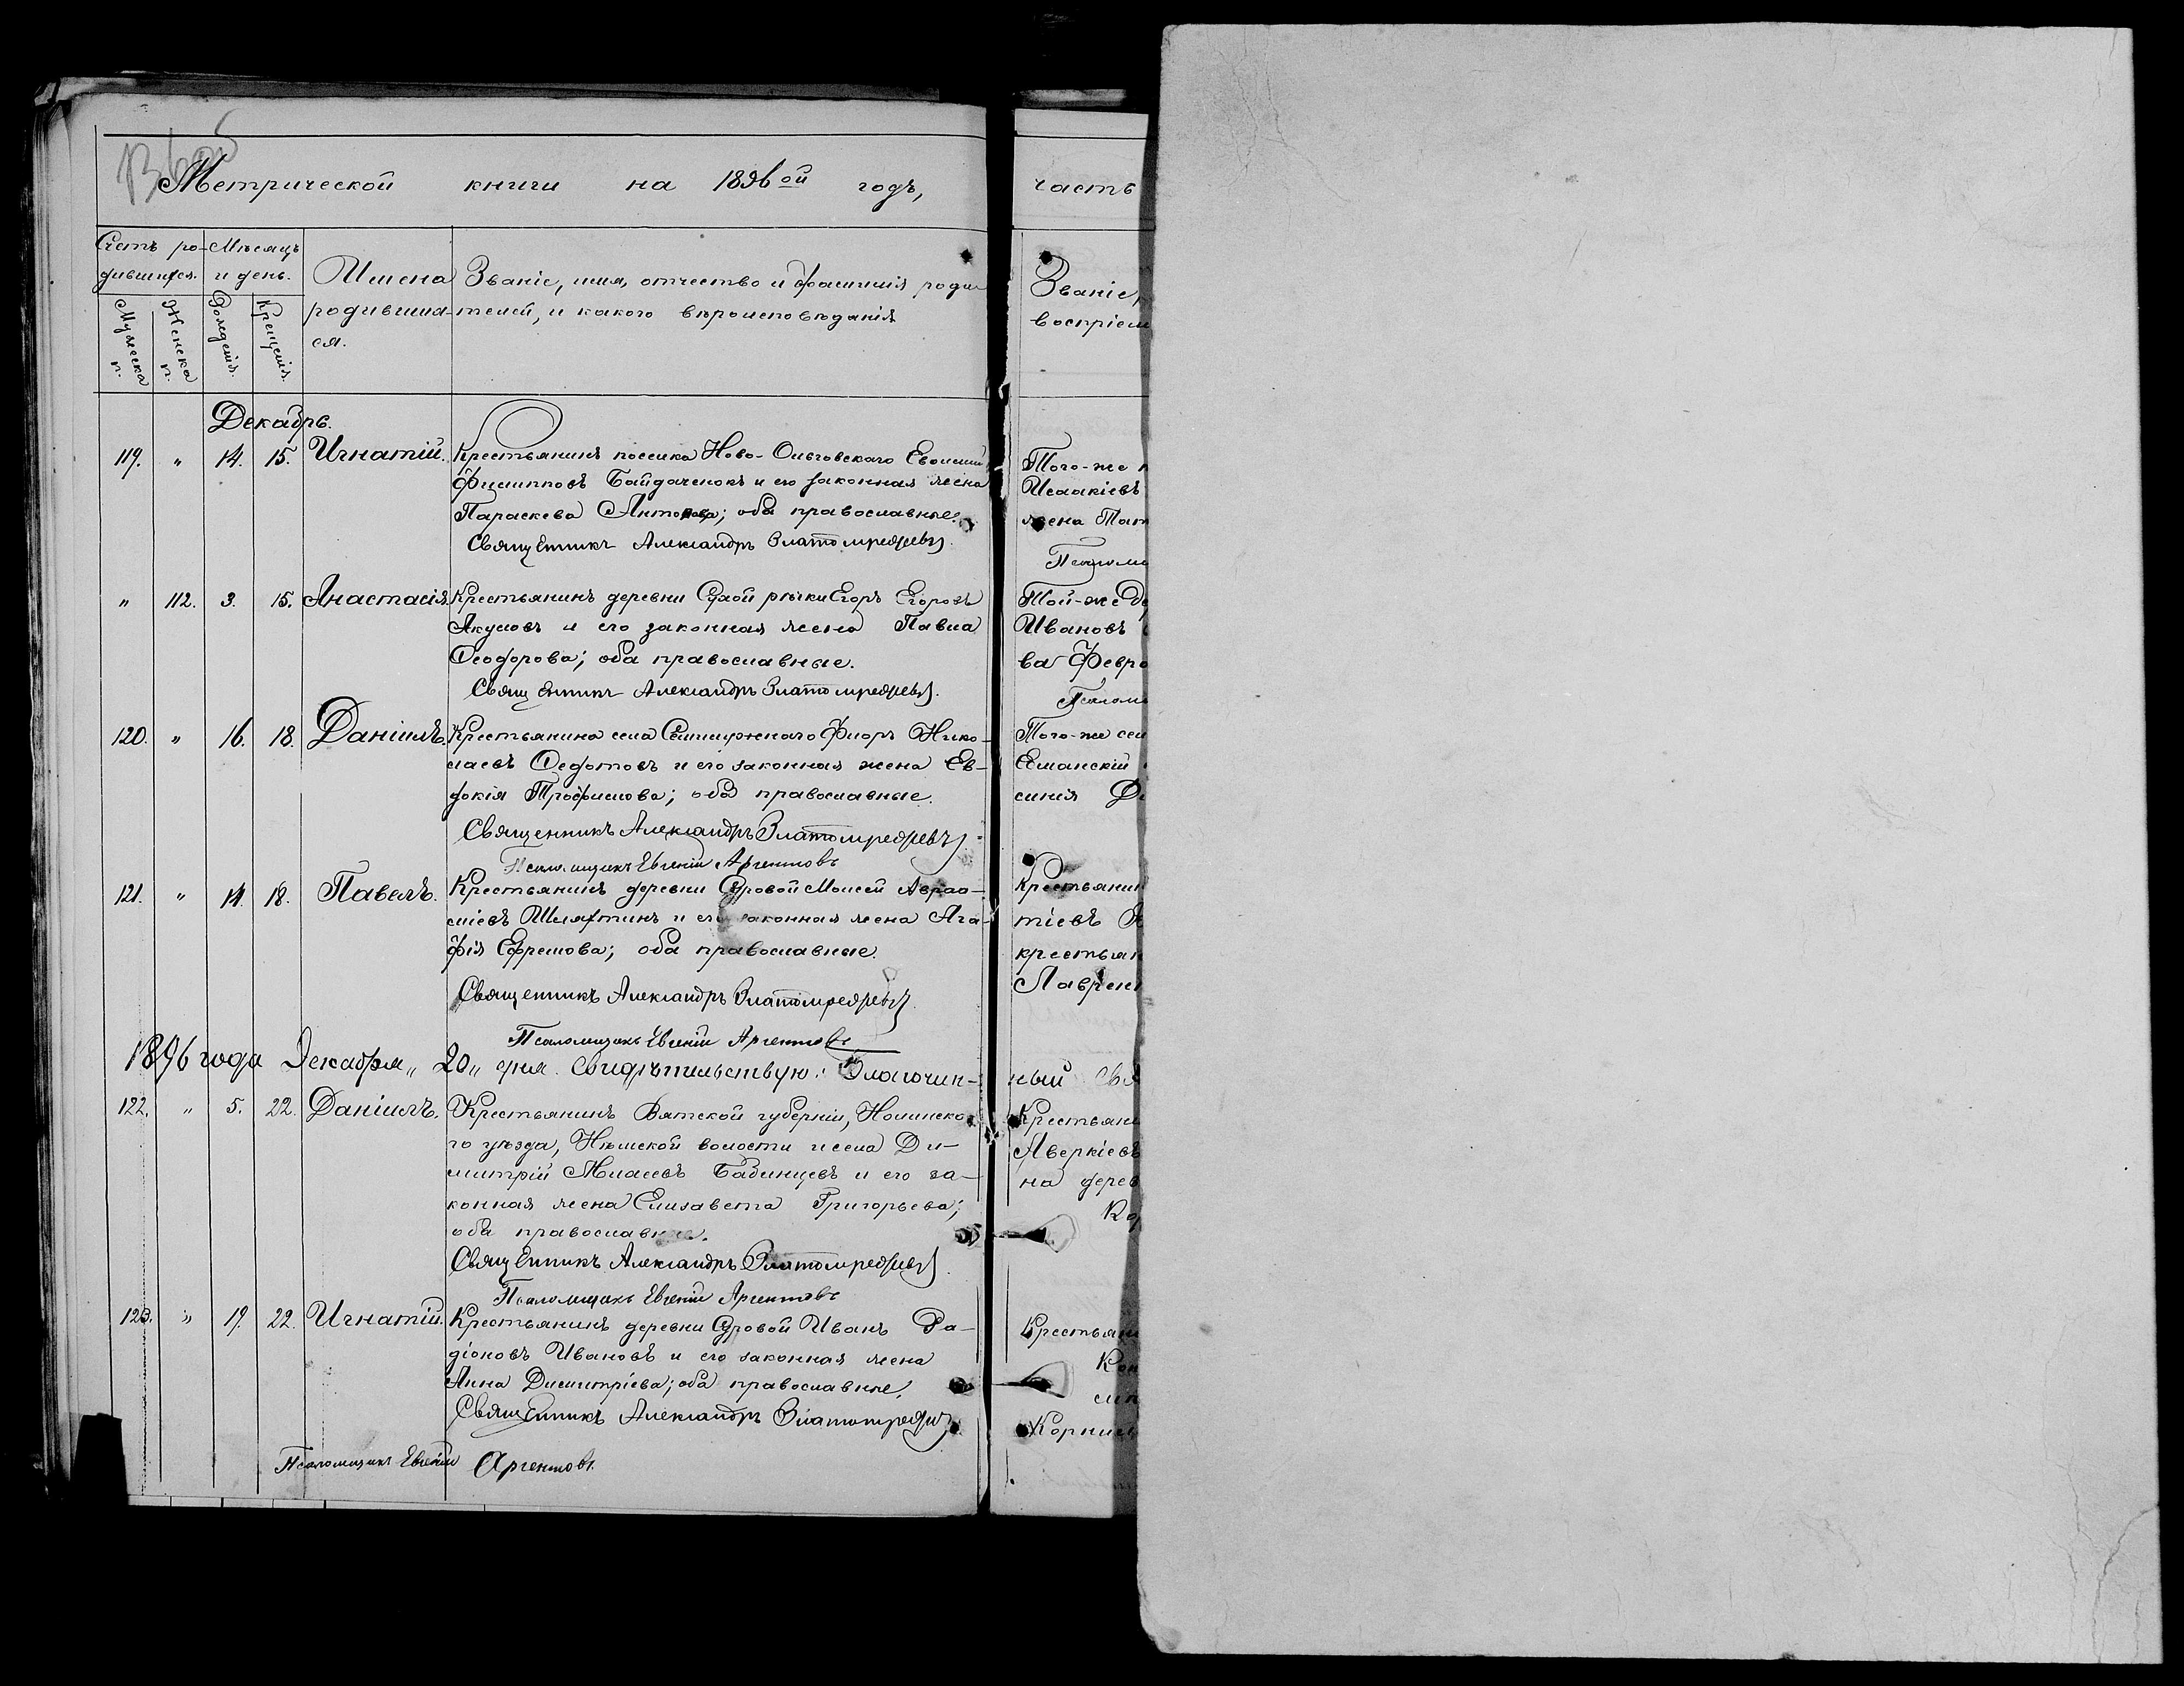 Метрической книги на 1896ой годъ,
Счетъ ро-
дившихся.
Мѣсяцъ
и день.
Имена
родивша-
ся.
Званіе, имя, отчество и фамилія роди-
телей, и какого вѣроисповѣданія
Мужеска п.
Женска п.
Рожденія.
Крещенія.
Декабрь.
119. " 14. 15. Игнатій. Крестьянинъ поселка Ново-Ольговскаго
Филипповъ Байдаченокъ и его законная жена
Параскева Антонова; оба православные.
Священникъ Александръ
" 112. 3. 15. Анастасія. Крестьянинъ деревни Сухой рѣчки Егоръ Егоровъ
Акуловъ и его законная жена Павла
Ѳеодорова; оба православные.
Священникъ Александръ
120. " 16. 18. Даніилъ. Крестьянина села Флоръ Нико-
лаевъ Ѳедотовъ и его законная жена Ев-
докія Трофимова; оба православные.
Священникъ Александръ
Псаломщикъ Евгеній Аргентовъ
121. " 14. 18. Павелъ. Крестьянинъ деревни Моисей Авраа-
міевъ Шляхтинъ и его законная жена Ага-
фія Ефремова; оба православные.
Священникъ Александръ
Псаломщикъ Евгеній Аргентовъ
1896 года Декабря „ 20 „ дня Свидѣтельствую: Благочин-
122. " 5. 22. Даніилъ. Крестьянинъ Вятской губерніи, Нолинска-
го уѣзда, Нѣмской волости и села Ди-
митрій Бабинцевъ и его за-
конная жена Елисавета Григорьева;
оба православные.
Священникъ Александръ
Псаломщикъ Евгеній Аргентовъ
123. " 19. 22. Игнатій. Крестьянинъ деревни Иванъ Ра-
діоновъ Ивановъ и его законная жена
Анна Димитріева; оба православные.
Священникъ Александръ
Псаломщикъ Евгеній Аргентовъ
часть
Званіе,
воспріем
Того-же
Исаакіевъ
жена Тат
Псалом
Той-же де
Ивановъ
ва Февро
Псаломъ
Того-же сел
Елманскій
синія
Крестьянин
тіевъ
крестьян
Лаврен
ный Свя
Крестьяни
Аверкіевъ
на дерев
Крестьяни
Корнил